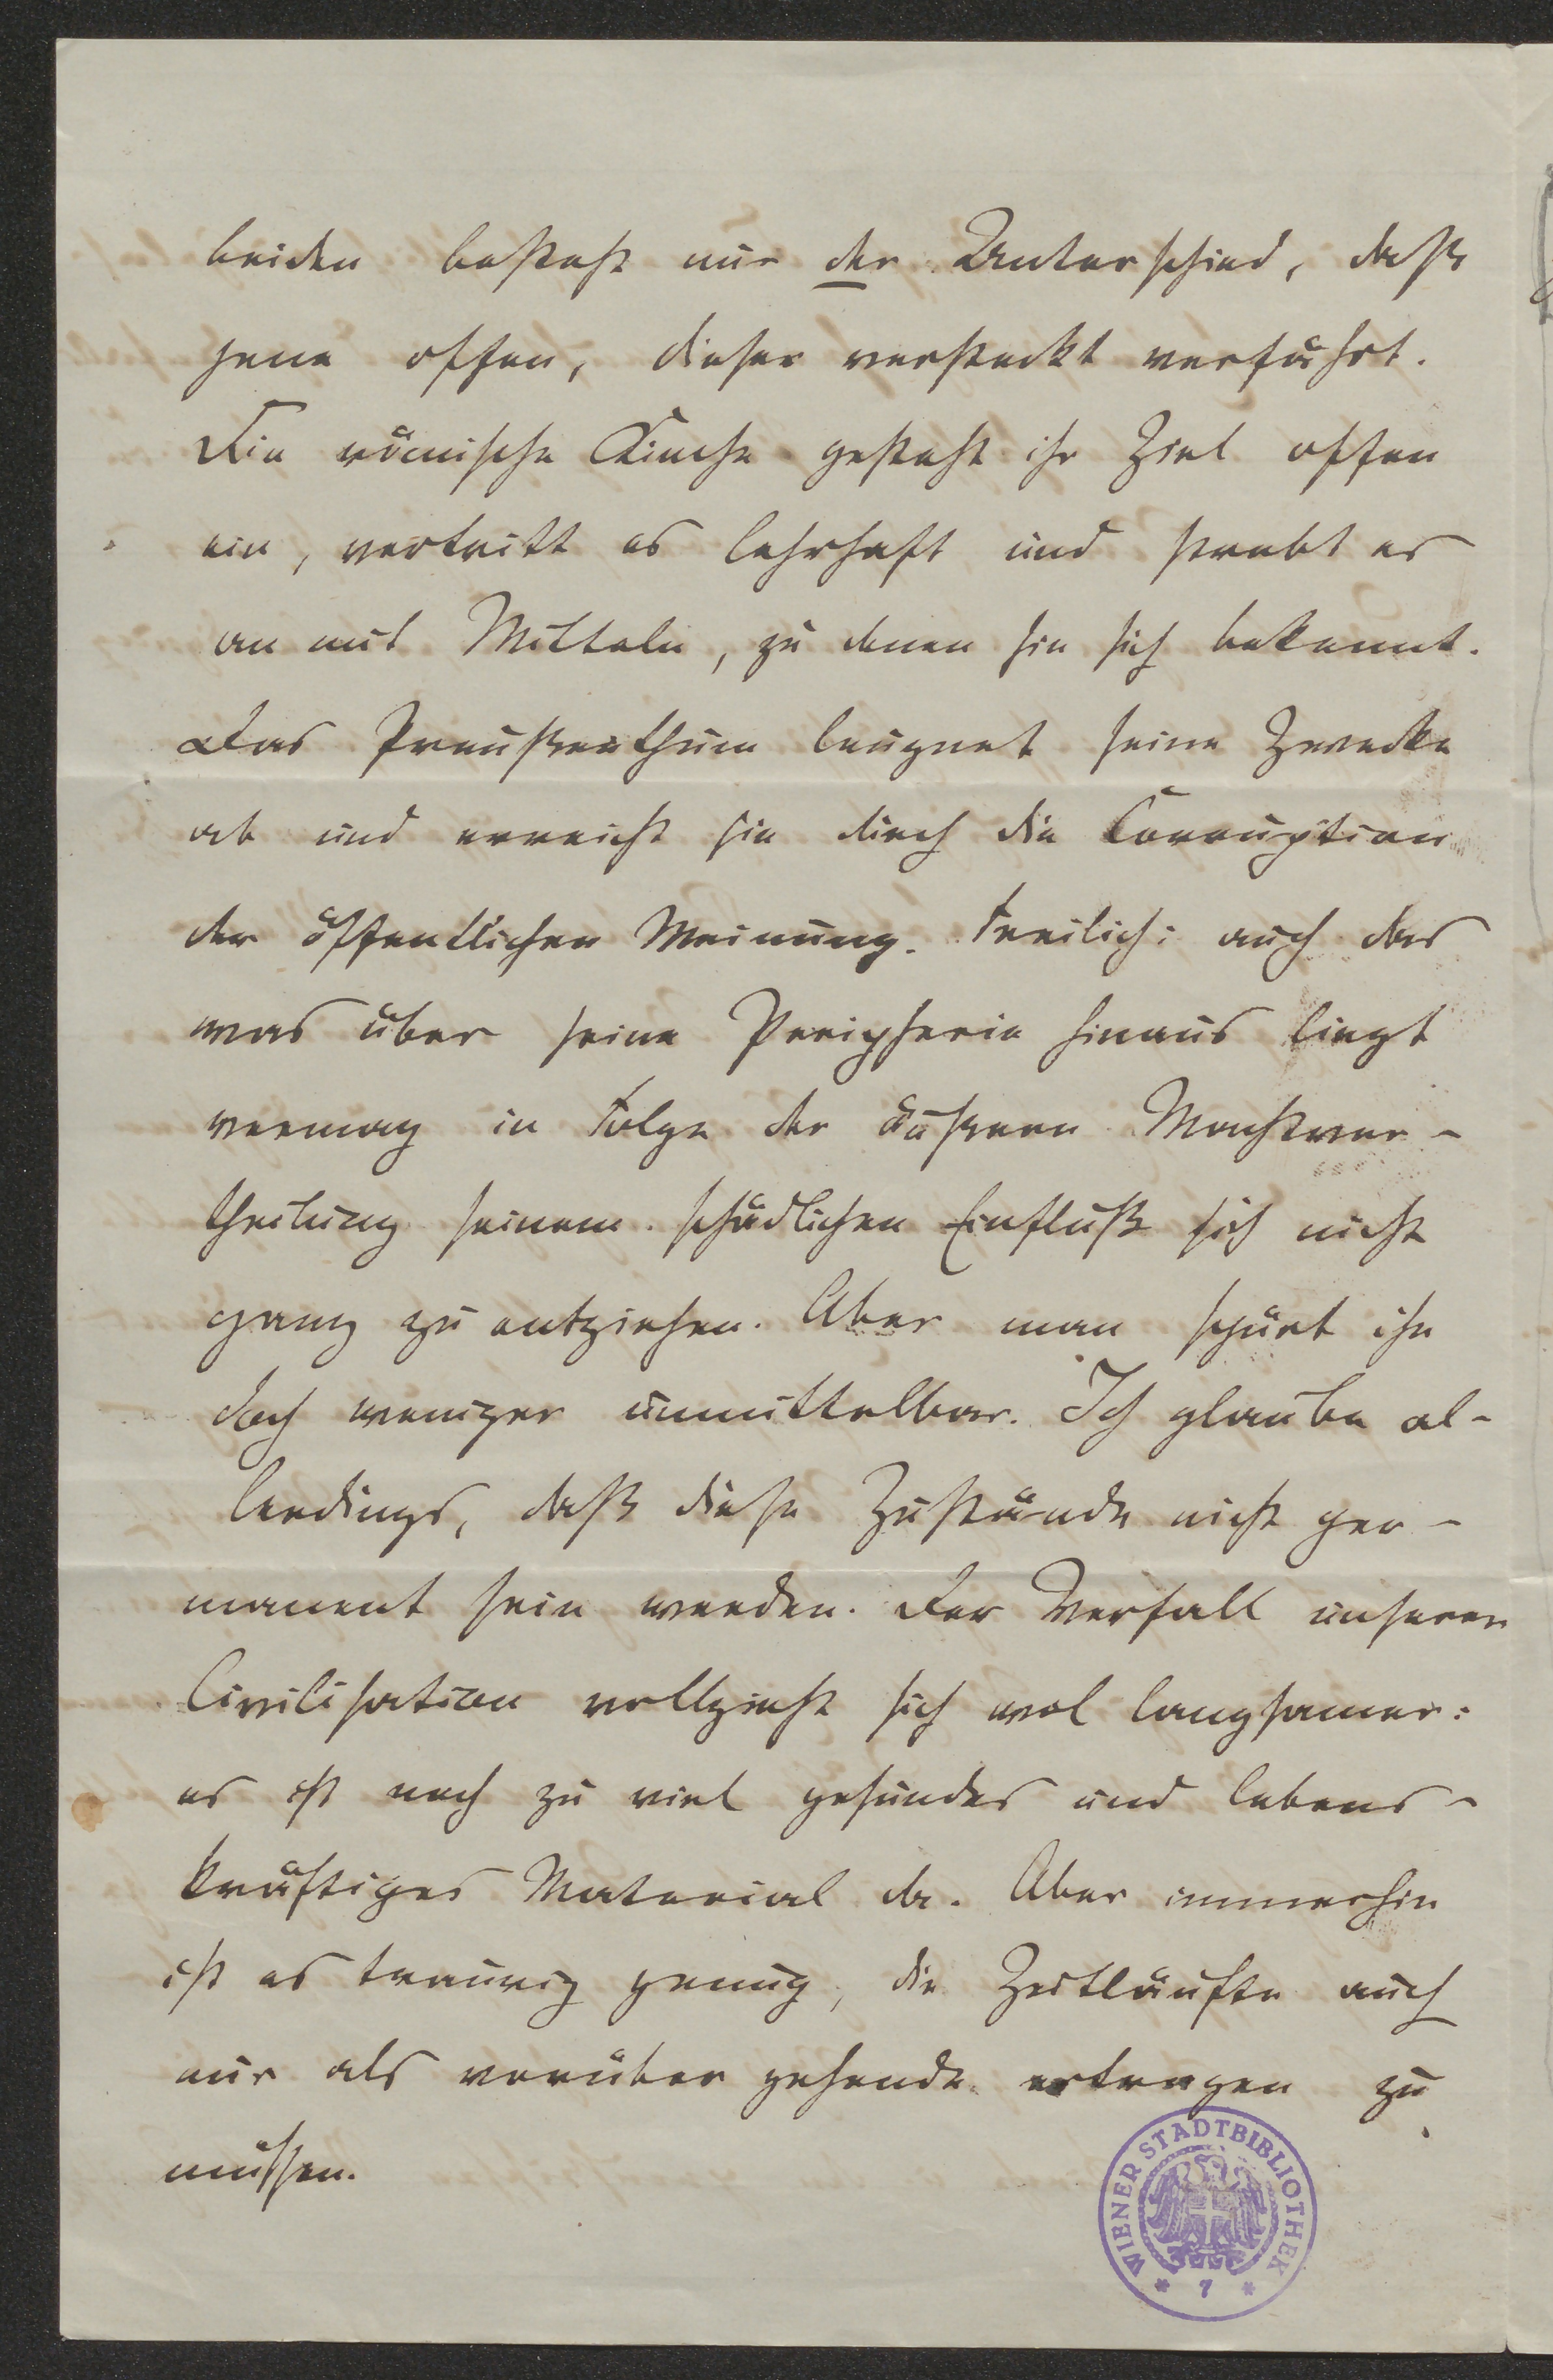 beiden besteht nur der Unterschied, daß
jene offen, dieser versteckt verfährt.
Die römische Kirche gesteht ihr Ziel offen
ein, vertritt es lehrhaft und strebt es
an mit Mitteln, zu denen sie sich bekennt.
Das Preußenthum leugnet seine Zwecke
ab und erreicht sie durch die Corruption
der öffentlichen Meinung. Freilich: auch das
was über seine Peripherie hinaus liegt
vermag in Folge der äußeren Machtver-
theilung seinem schädlichen Einfluß sich nicht
ganz zu entziehen. Aber man spürt ihn
doch weniger unmittelbar. Ich glaube al-
lerdings, daß diese Zustände nicht per-
manent sein werden. Der Verfall unserer
Civilisation vollzieht sich wol langsamer:
es ist noch zu viel gesundes und lebens-
kräftiges Material da. Aber immerhin
ist es traurig genug, die Zeitläufte auch
nur als vorüber gehende ertragen zu
müssen.
WIENER STADTBIBLIOTHEK
* 7 *